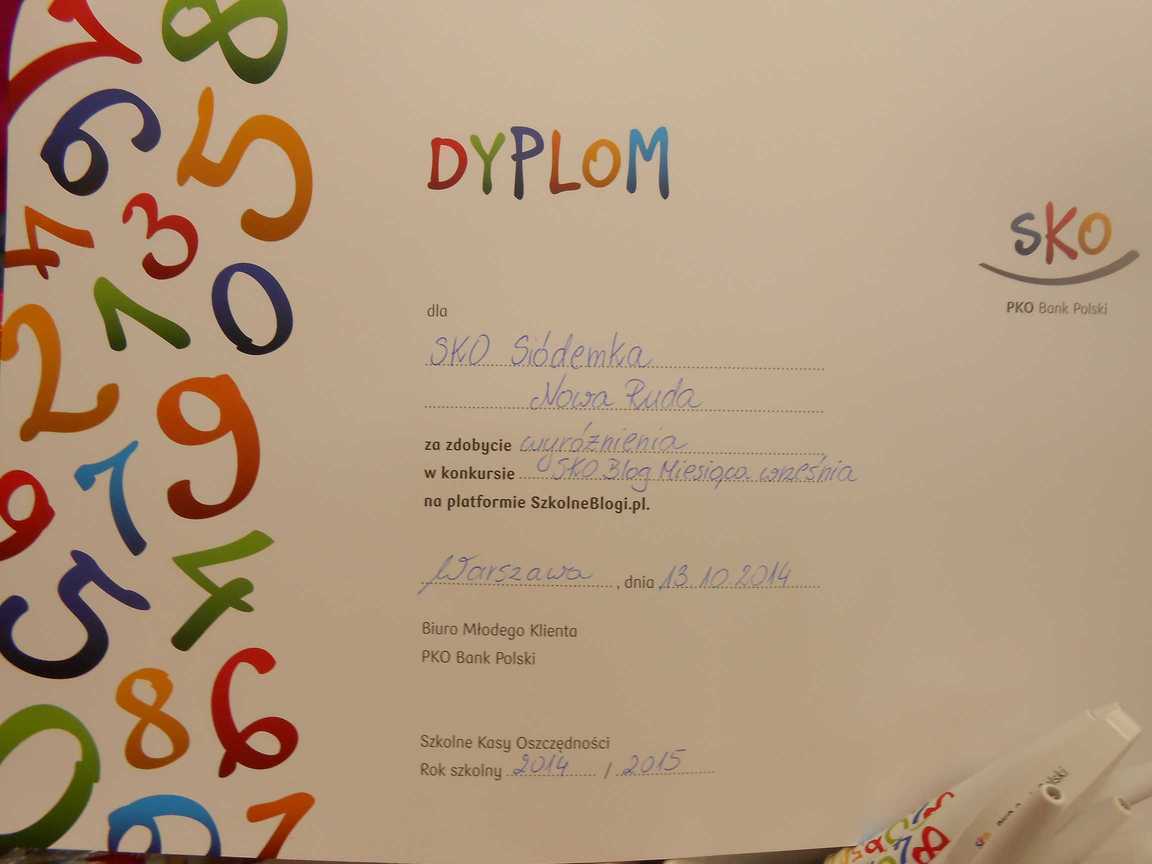 DYPLOM
SKO
PKO Bank Polski
dla
SKO Siódemka
Nowa Ruda
za zdobycie wyróżnienia
w konkursie SKO Blog Miesiąca września
na platformie SzkolneBlogi.pl.
Warszawa, dnia 13.10.2014
Biuro Młodego Klienta
PKO Bank Polski
Szkolne Kasy Oszczędności
Rok szkolny 2014 / 2015